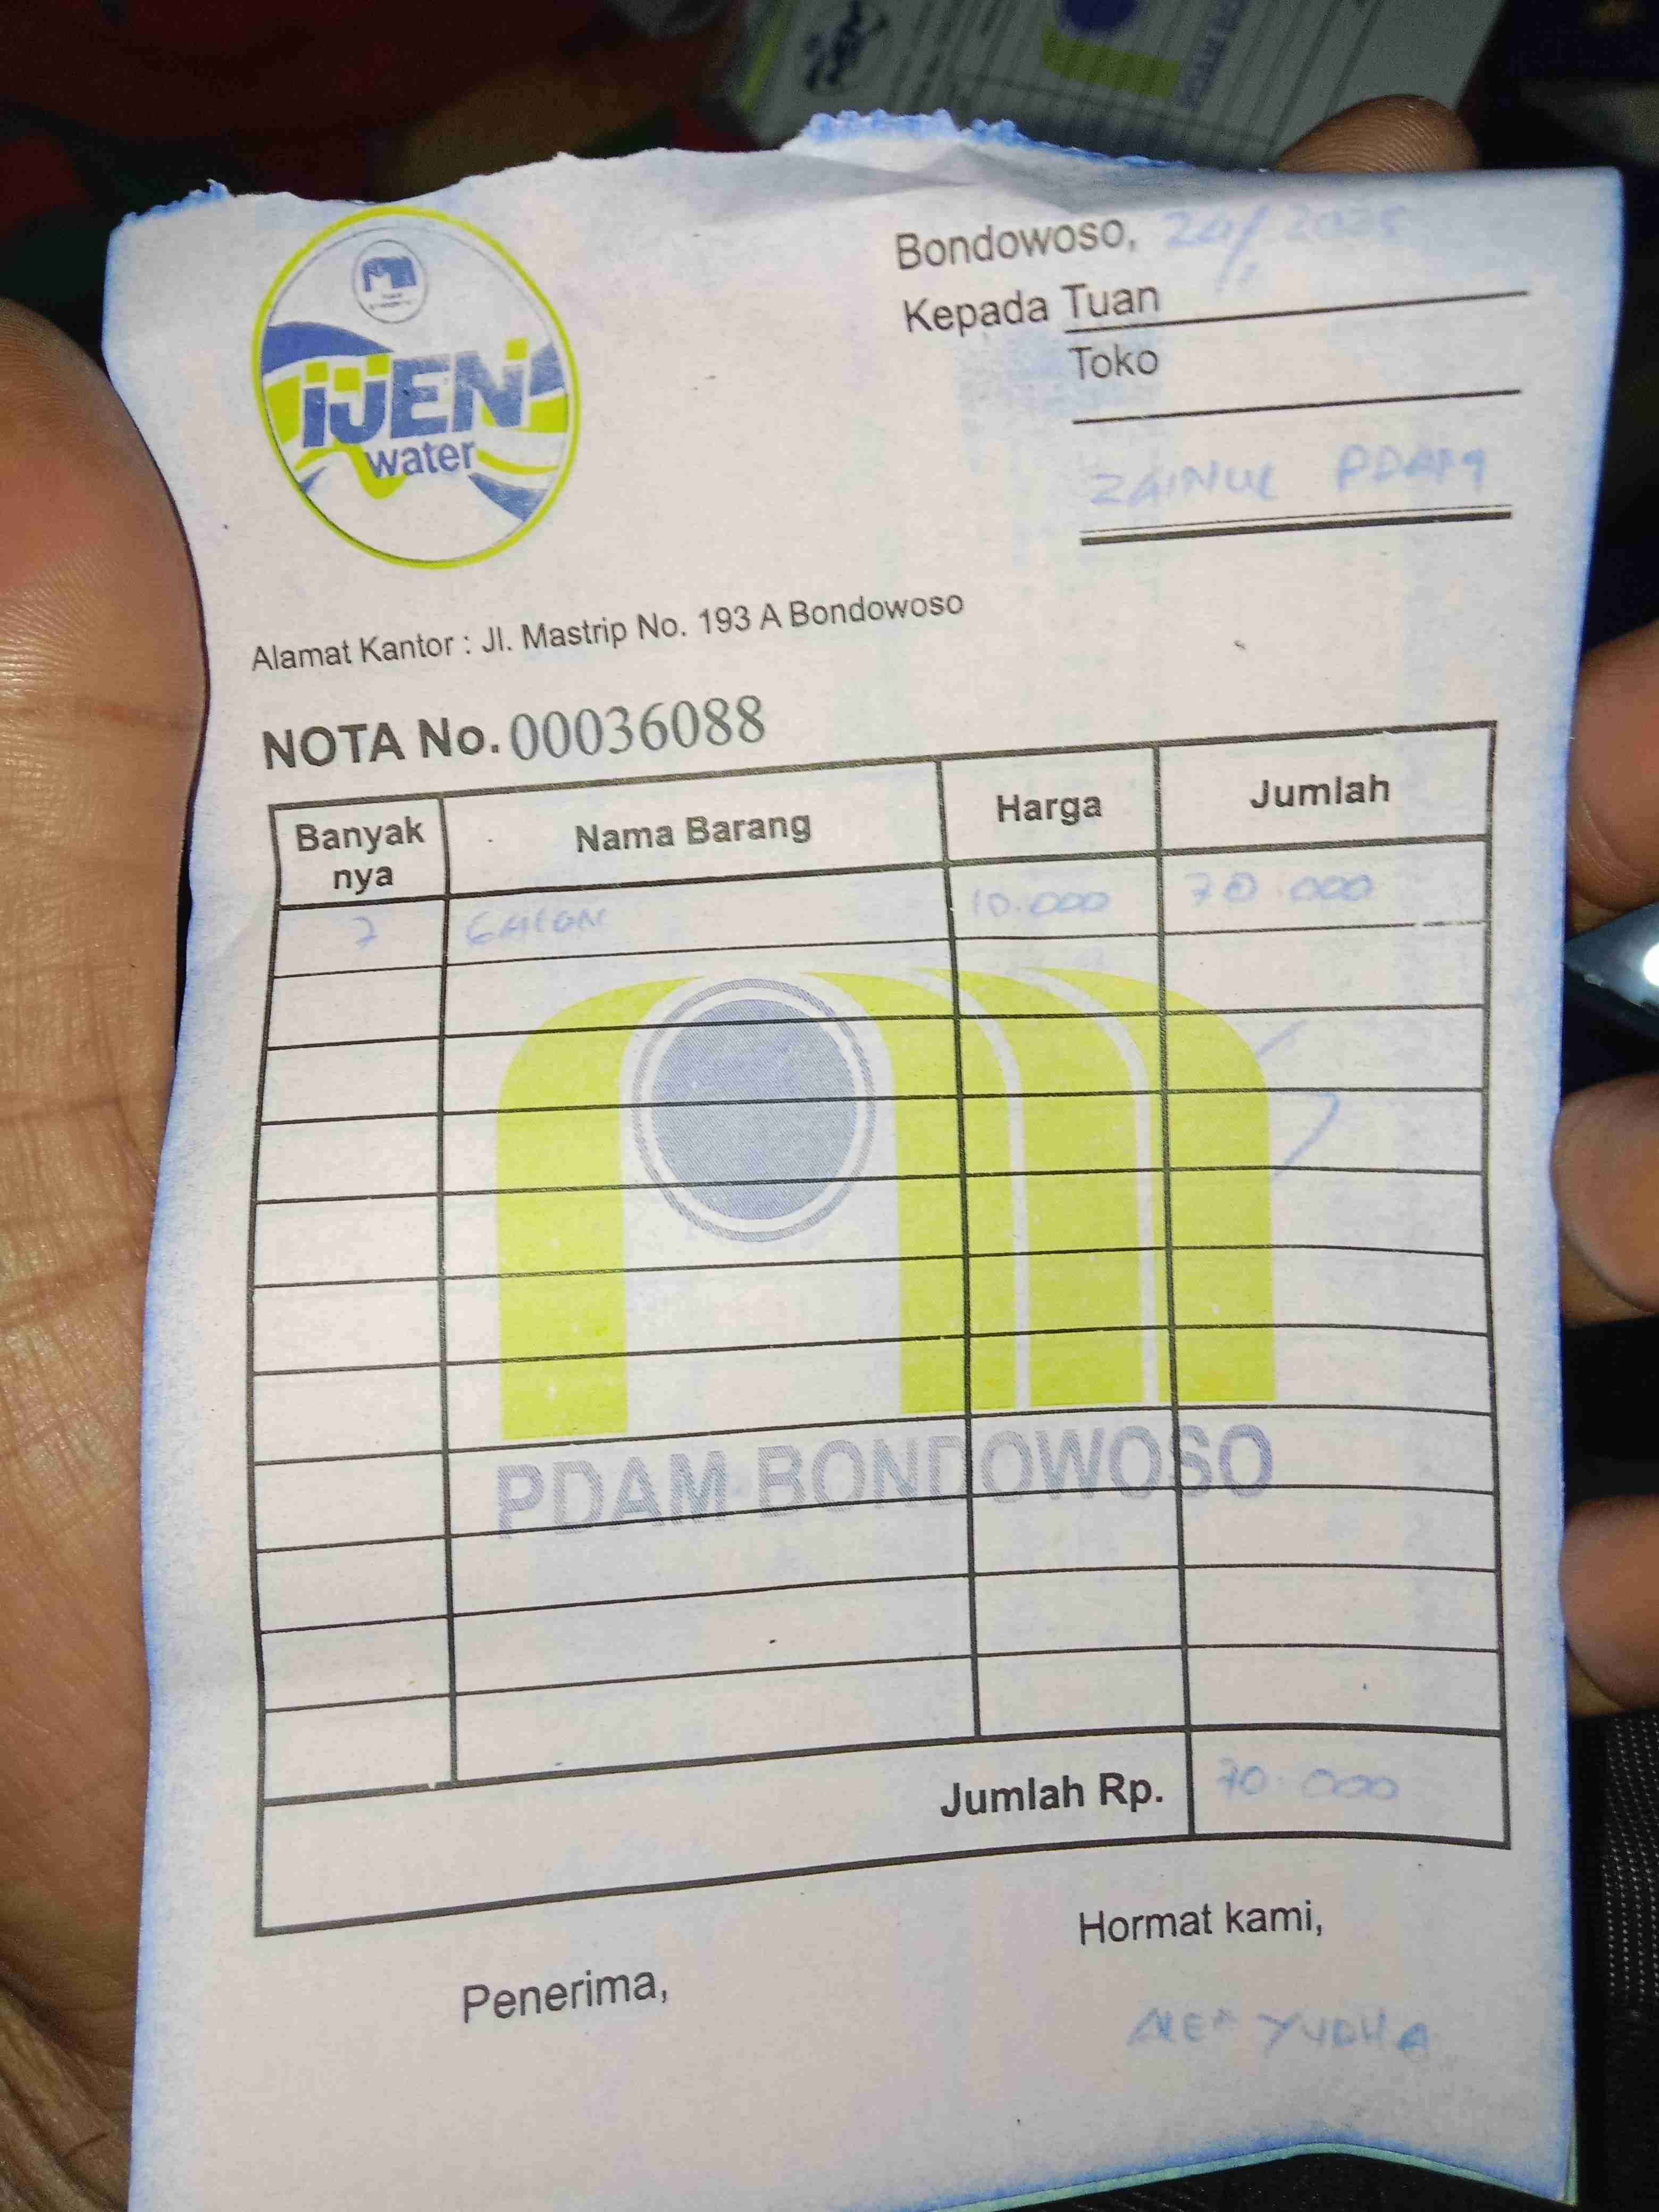 iJEN
water
Bondowoso, 2025
Kepada Tuan
Toko
ZAINUL PDAM
Alamat Kantor : Jl. Mastrip No. 193 A Bondowoso
NOTA No. 00036088
Banyak nya Nama Barang Harga Jumlah
7 GALON 10.000 70.000
PDAM BONDOWOSO
Jumlah Rp. 70.000
Penerima,
Hormat kami,
YUDHA